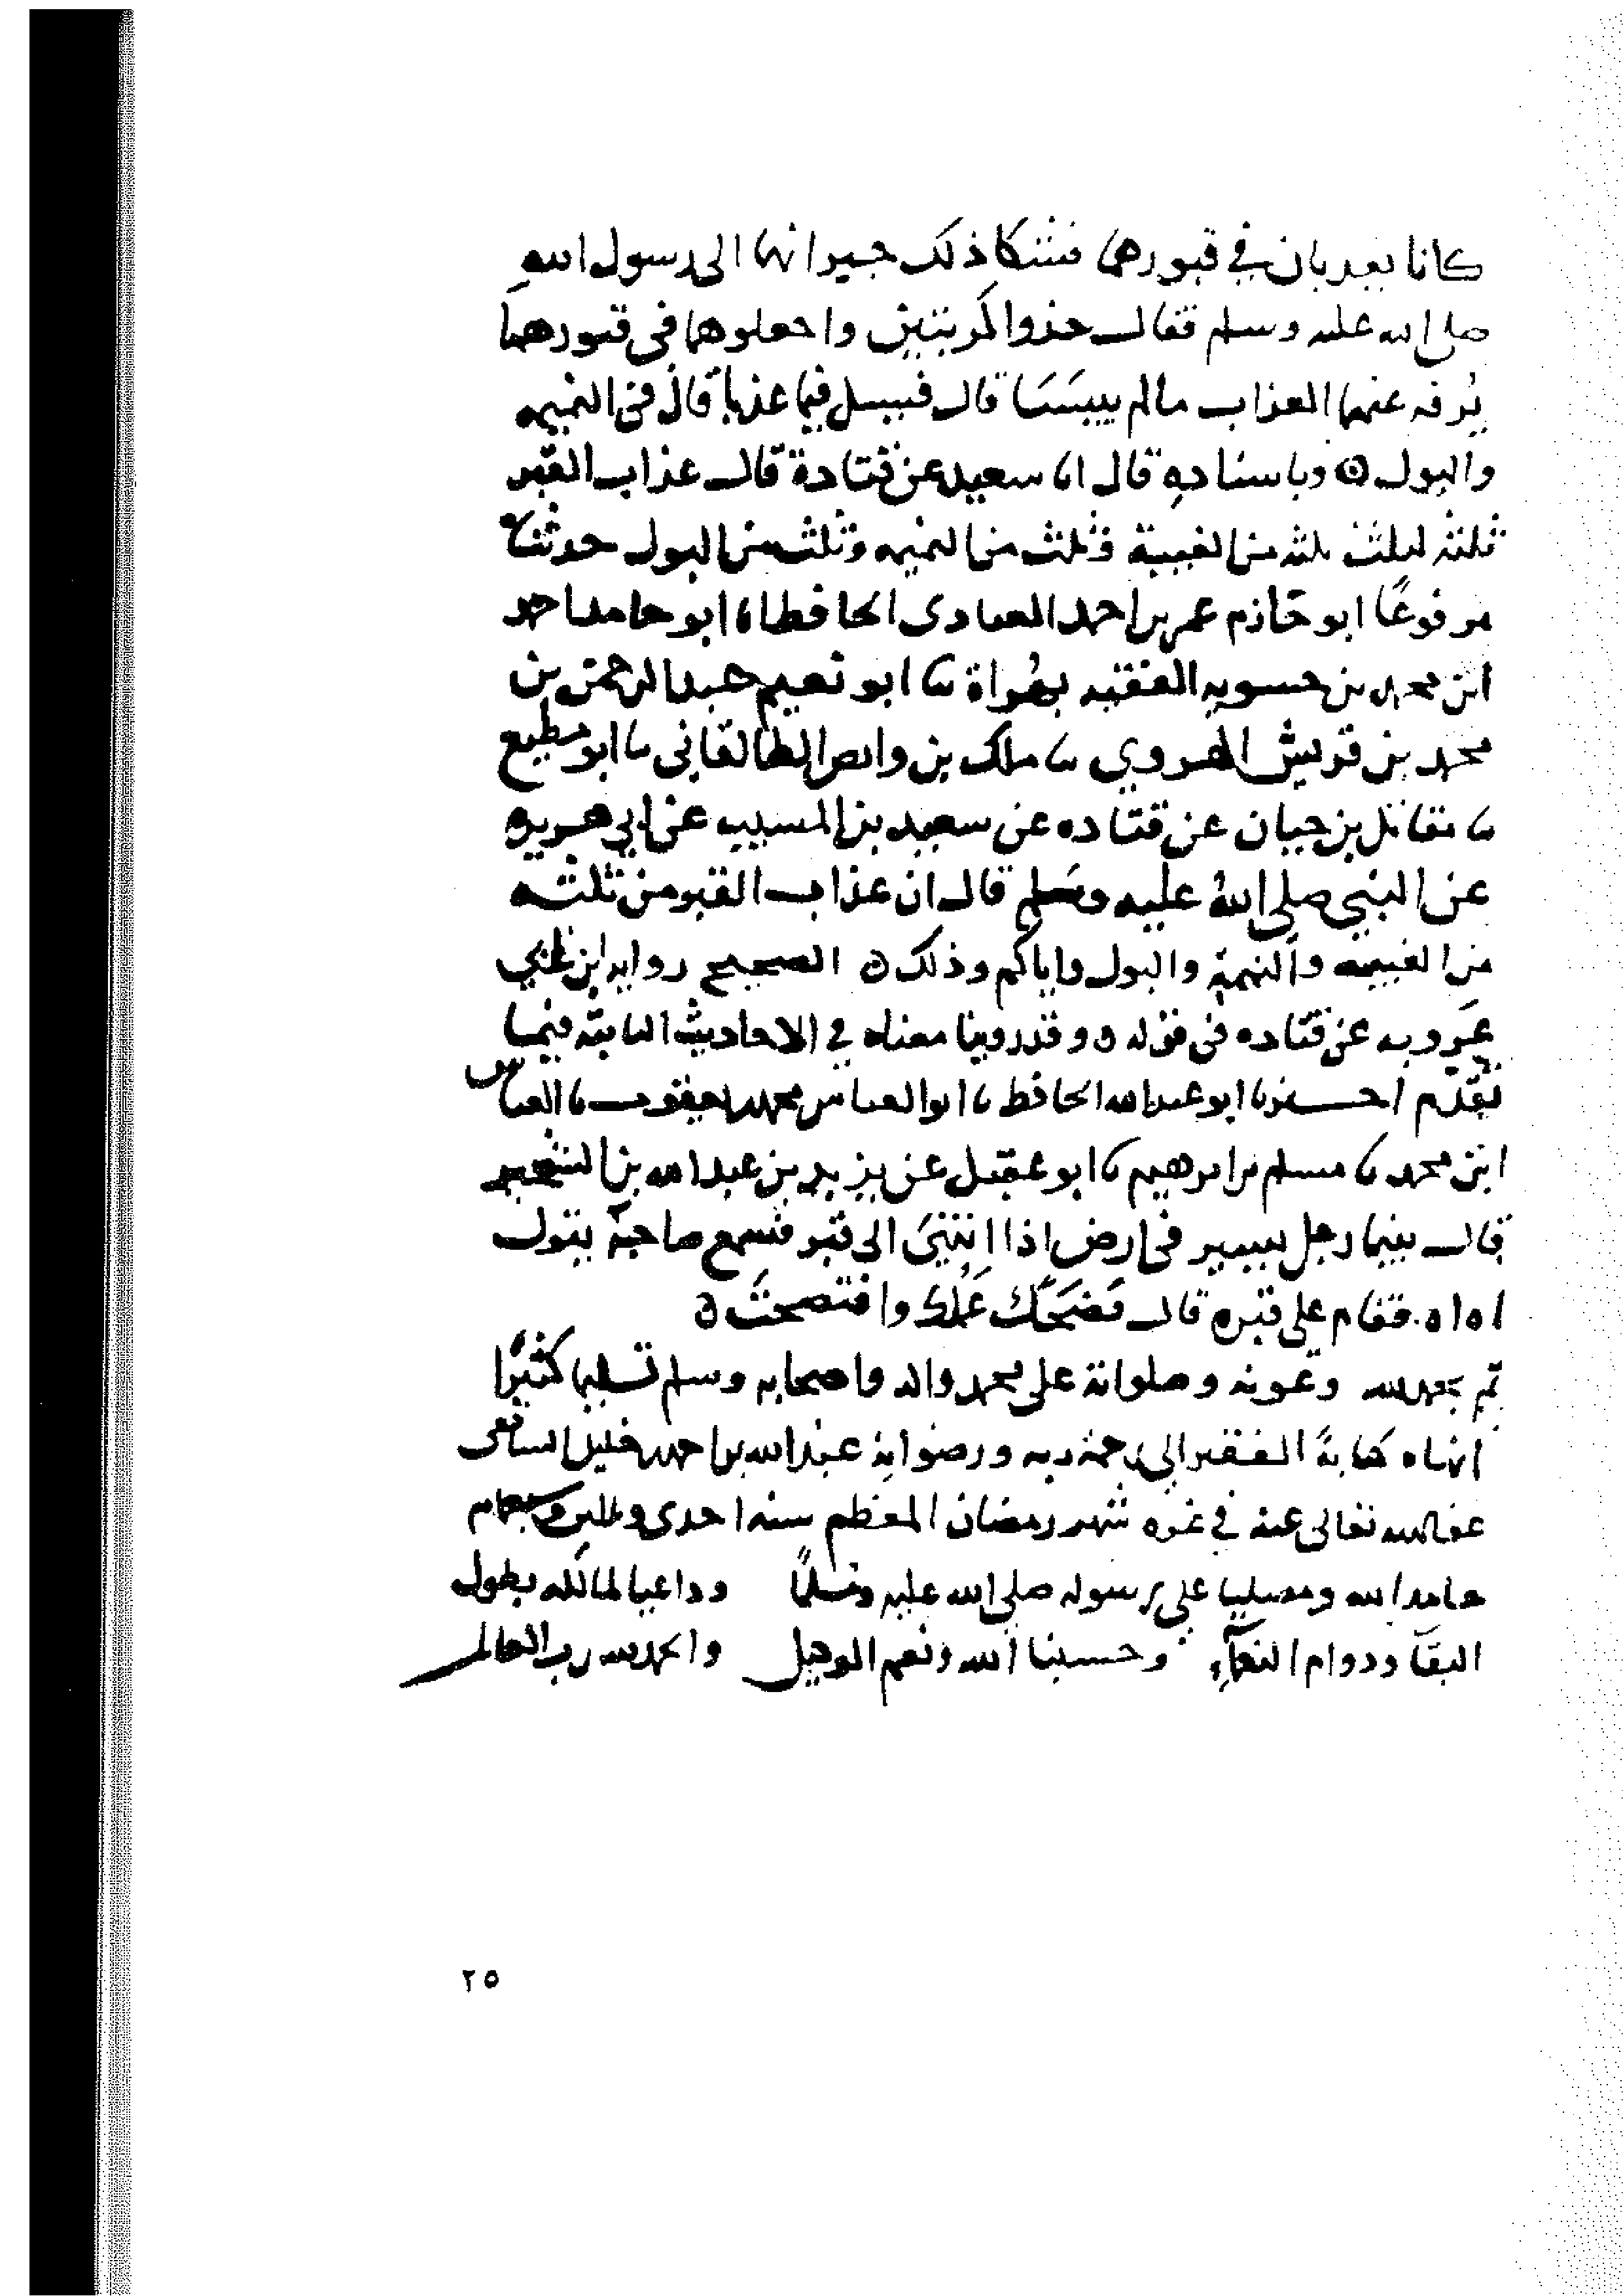 كانا يعذبان في قبورهما فشكا ذلك جيرانهما الى رسول الله
صلى الله عليه وسلم فقال خذوا كربتين واجعلوهما في قبورهما
يُرفه عنهما العذاب ما لم ييبسَا قال فسيل فيما عذبا قال في النميمه
والبول ۞ وباسناده قال انا سعيد عن قتادة قال عذاب القبر
ثلثه اثلث ثلثه من الغيبة وثلث من النميمه وثلث من البول حدثناه
مرفوعًا ابو حازم عمر بن احمد العبادى الحافظ انا ابو حامد احمد
ابن محمد بن حسويه الفقيه بهراة نا ابو نعيم عبد الرحمن بن
محمد بن قريش الهروي نا ملك بن وابص الطالقاني نا ابو مطيع
نا مقاتل بن حيان عن قتاده عن سعيد بن المسيب عن ابي هريره
عن النبي صلى الله عليه وسلم قال ان عذاب القبر من ثلثه
من الغيبه والنميمة والبول واياكم وذلك ن الصحيح رواية ابن ابي
عَروبه عن قتاده في قوله ن وقد روينا معناه في الاحاديث الثابتة فيما
تقدّم اخبرنا ابو عبد الله الحافظ نا ابو العباس محمد بن يعقوب نا العباس
ابن محمد نا مسلم بن ابرهيم نا ابو عقيل عن يزيد بن عبد الله بن الشخير
قال بينما رجل يسير في ارض اذا انتهىَ الى قبر فسمع صاحبه يقول
اه اه فقام على قبره قال فضحك عملك وافتضحتَ ن
تم بحمد لله وعونه وصلواته على محمد واله واصحابه وسلم تسليما كثيرًا
انهاه كتابةً الفقير الى رحمة ربه ورضوانه عبد الله بن احمد خليل الشافعى
عفا الله تعالى عنه في غره شهر رمضان المعظم سنه احدى وثلثين وسبعمايه
حامدا لله ومصليا على رسوله صلى الله عليه وسلمًا وداعيا لمالكه بطول
البقآ ودوام النعمآء وحسبنا الله ونعم الوكيل والحمد لله رب العالمين
٢٥